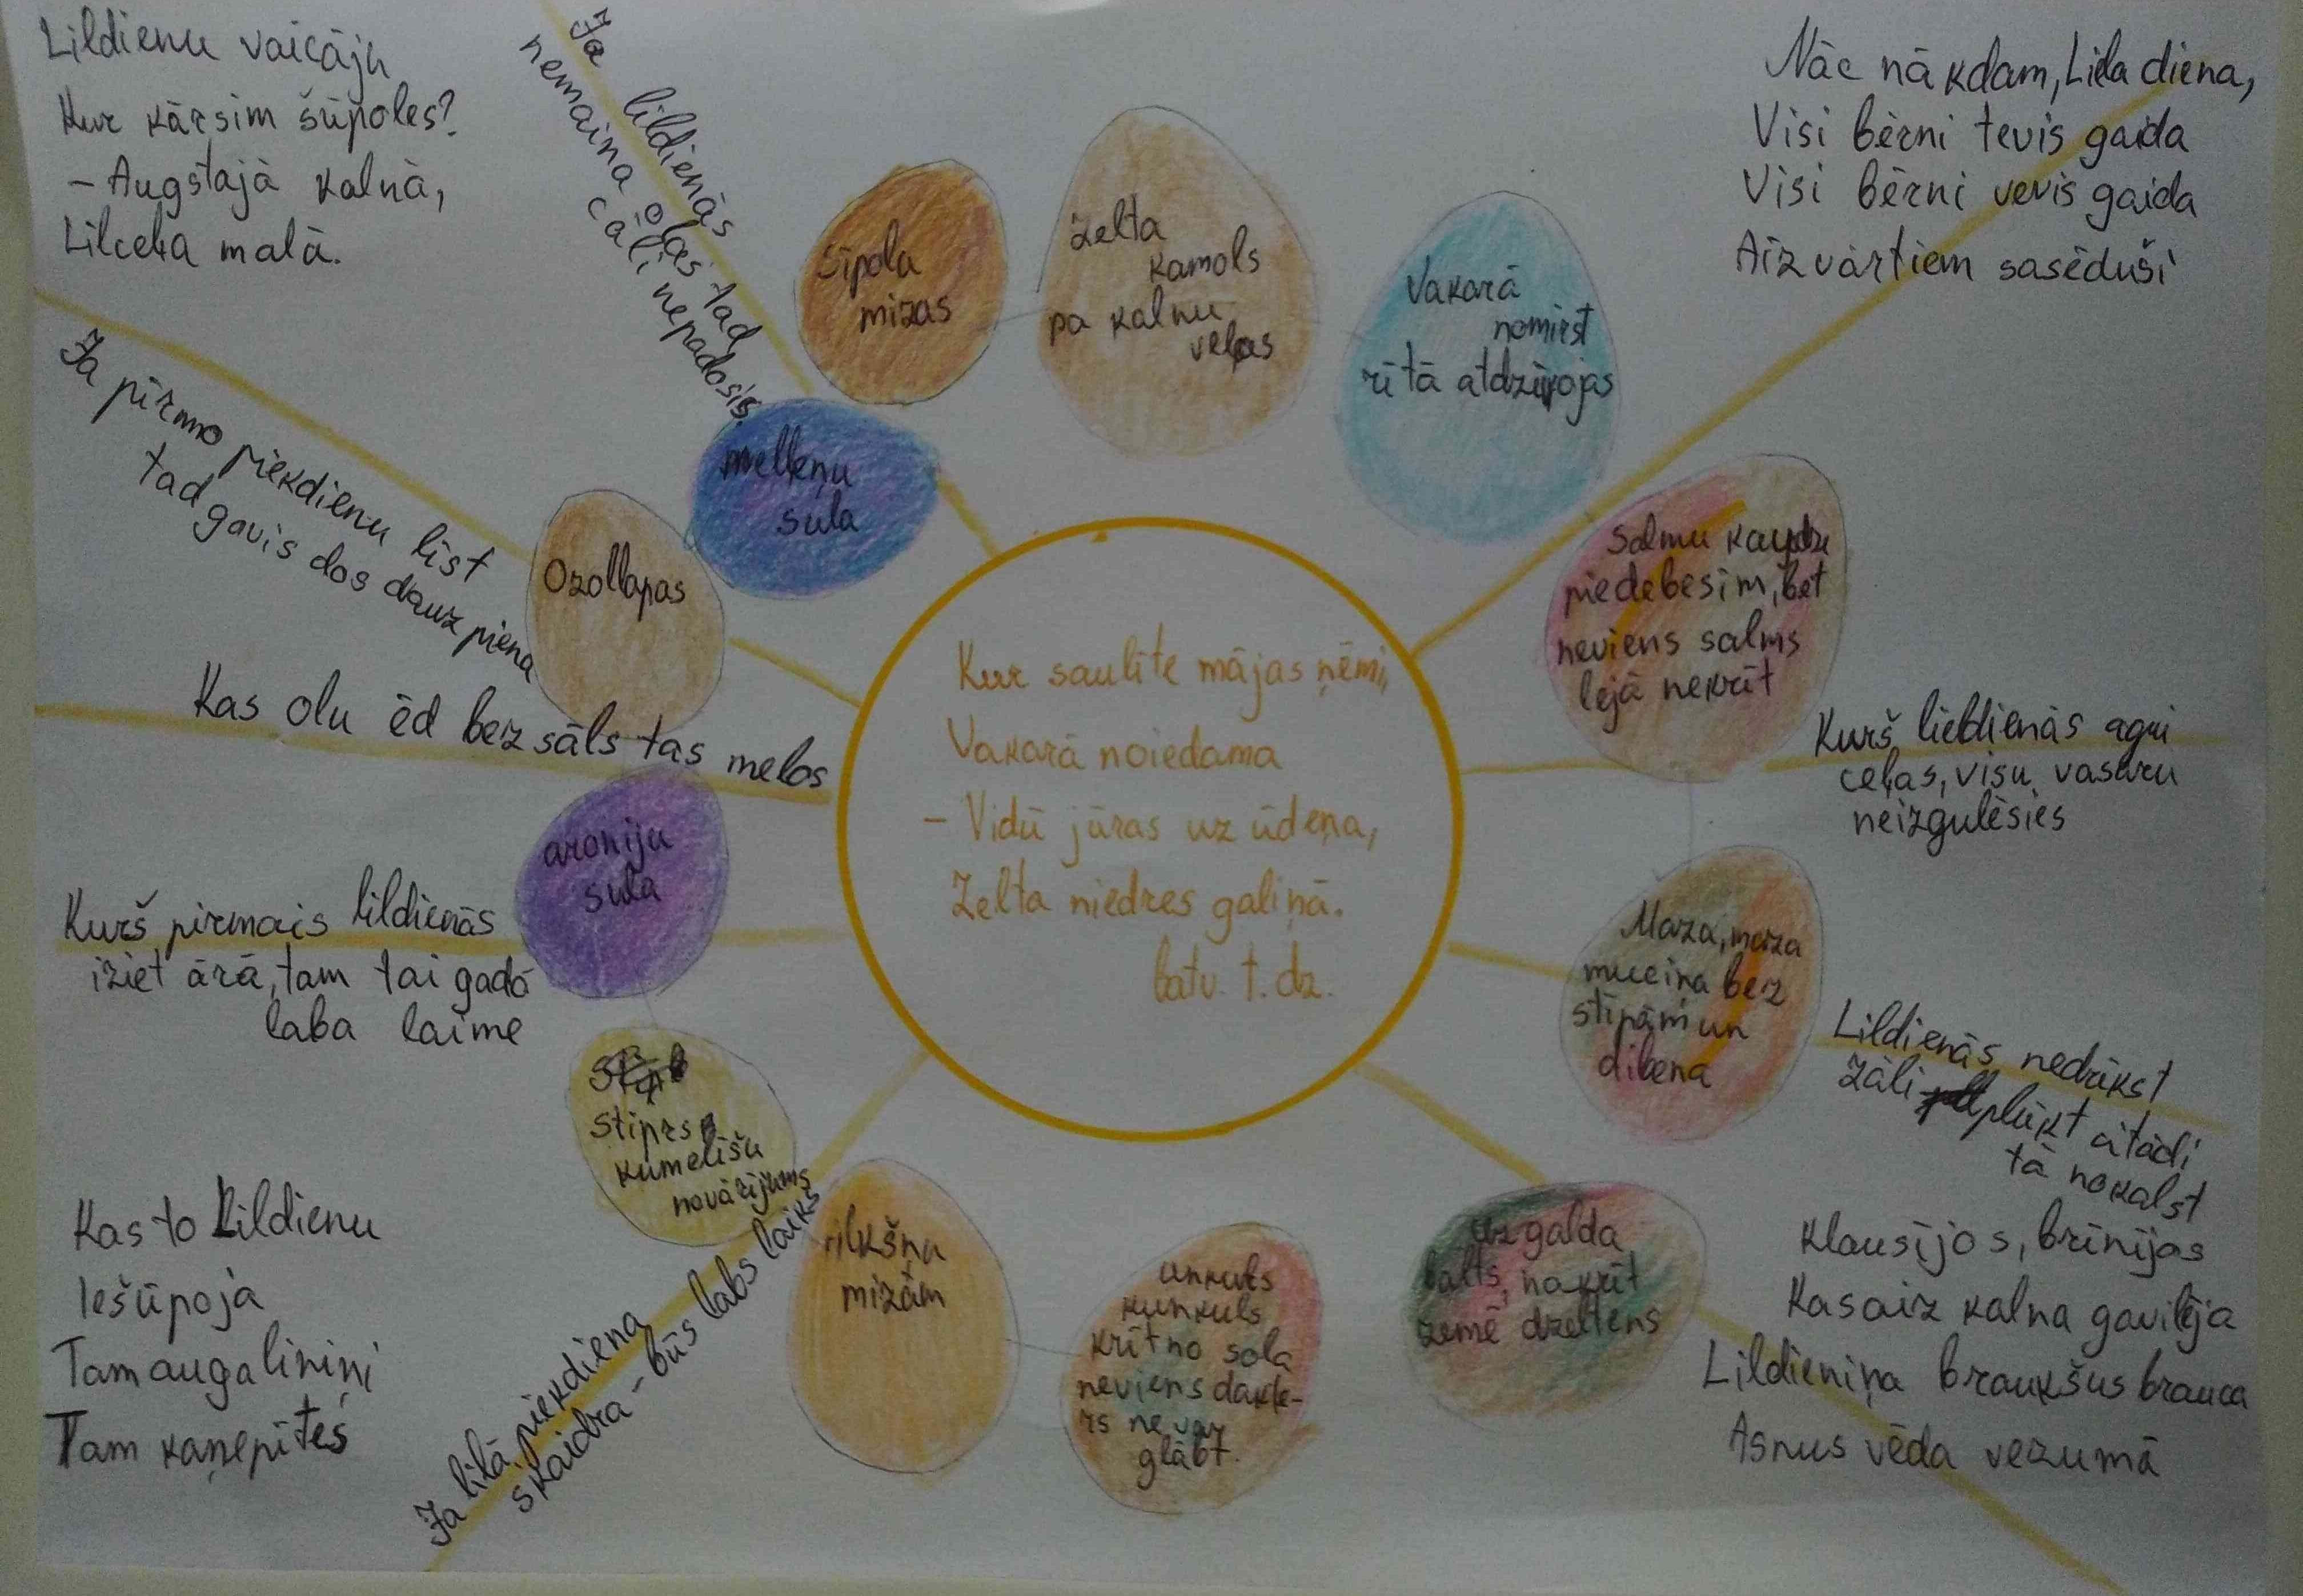 Lildienu vaicāju
Kur kārsim šūpoles?
- Augstajā kalnā,
Lilceļa malā.
Ja lildienās
nemaina olas tad
cāļi nepadosis
Nāc nākdam, Liela diena,
Visi bērni tevis gaida
Visi bērni vevis gaida
Aiz vārtiem sasēduši
sīpola
mizas
zelta
kamols
pa kalnu
veļas
Vakarā
nomirst
rītā atdzīvojas
melleņu
sula
Ozollapas
Ja pirmo piekdienu līst
tad gavis dos dauz piena
Kas olu ēd bez sāls tas melos
Salmu kaudze
piedebesim, bet
neviens salms
lejā nekrīt
Kurš lieldienās agri
ceļas, visu vasaru
neizgulēsies
Kur saulīte mājas ņēmi,
Vakarā noiedama
- Vidū jūras uz ūdeņa,
Zelta niedres galiņā.
latv. t. dz.
aroniju
sula
Kurš pirmais lildienās
iziet ārā, tam tai gadā
laba laime
Maza, maza
muciņa bez
stīpām un
dibena
Lildienās nedrīkst
zāli plūkt citādi
tā nokalst
stiprs
kumelīšu
novārījums
rilkšņu
mizām
unkuls
kunkuls
krīt no sola
neviens dakte-
rs nevar
glābt.
uz galda
balts, nokrīt
zemē dzeltens
Kas to Lildienu
Iešūpoja
Tam auga liniņi
Tam kaņepītes
Ja lilā piekdiena
skaidra - būs labs laiks
Klausījos, brīnījas
Kas aiz kalna gavilēja
Lildieniņa braukšus brauca
Asnus vēda vezumā